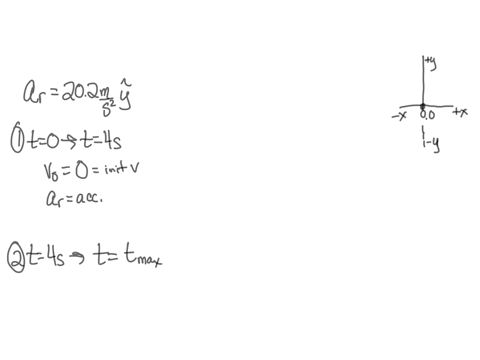 aᵣ = 20.2 m/s² ŷ
① t=0 → t=4s
v₀ = 0 = init v
aᵣ = acc.
② t=4s → t= t max
+y
-x 0,0 +x
-y